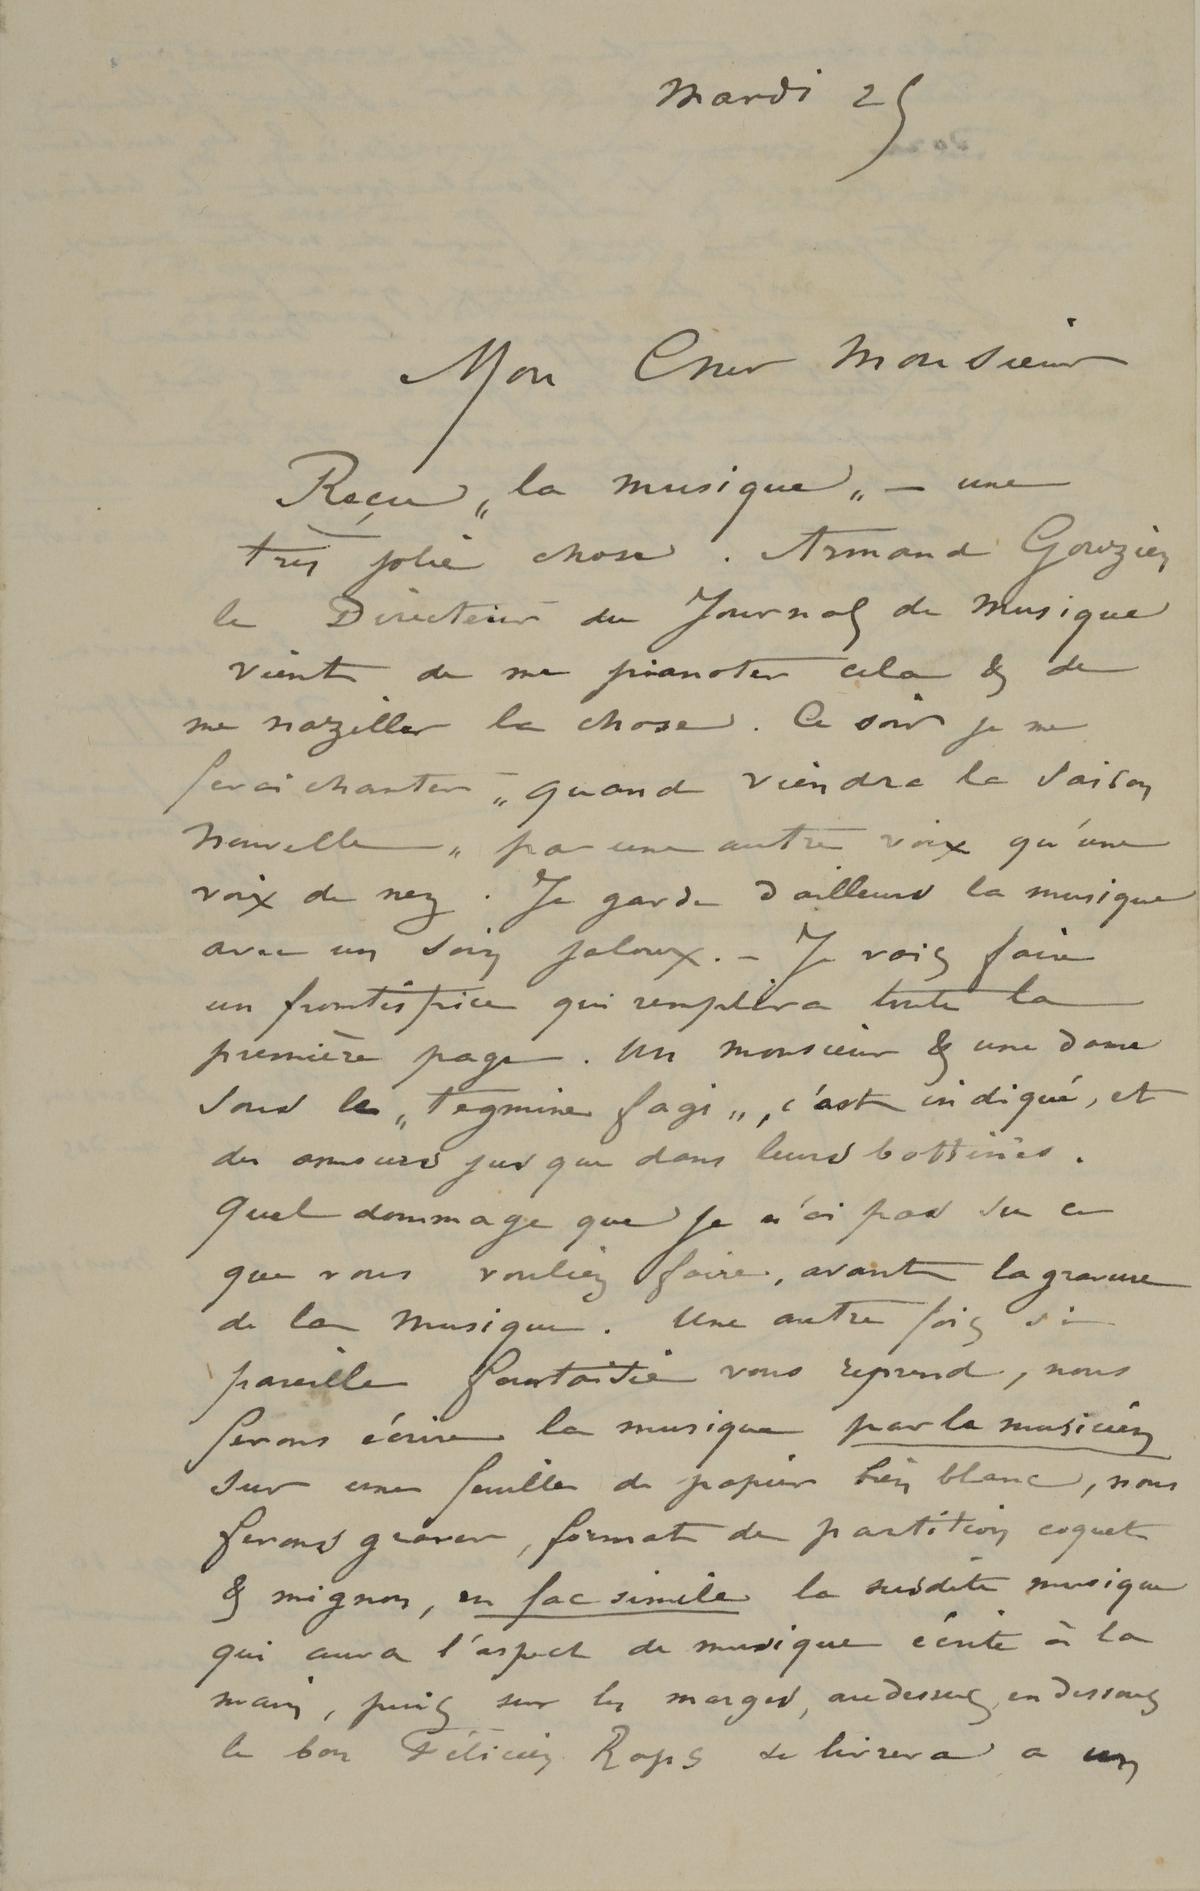 Mardi 25
Mon Cher Monsieur
Reçu „la musique„ – une
très jolie chose. Armand Gouzien
le Directeur du Journal de Musique
vient de me pianoter cela & de
me naziller la chose. Ce soir je me
ferai chanter „quand viendra la saison
nouvelle„ par une autre voix qu'une
voix de nez. Je garde d'ailleurs la musique
avec un soin jaloux. – Je vais faire
un frontispice qui remplira toute la
première page. Un monsieur & une dame
sous le „tegmine fagi„, c'est indiqué, et
des amours jusque dans leurs bottines.
Quel dommage que je n'ai pas su ce
que vous vouliez faire, avant la gravure
de la musique. Une autre fois si
pareille fantaisie vous reprend, nous
ferons écrire la musique par le musicien
sur une feuille de papier bien blanc, nous
ferons graver, format de partition coquet
& mignon, en fac simile la susdite musique
qui aura l'aspect de musique écrite à la
main, puis sur les marges, audessus, en dessous
le bon Félicien Rops se livrera a un